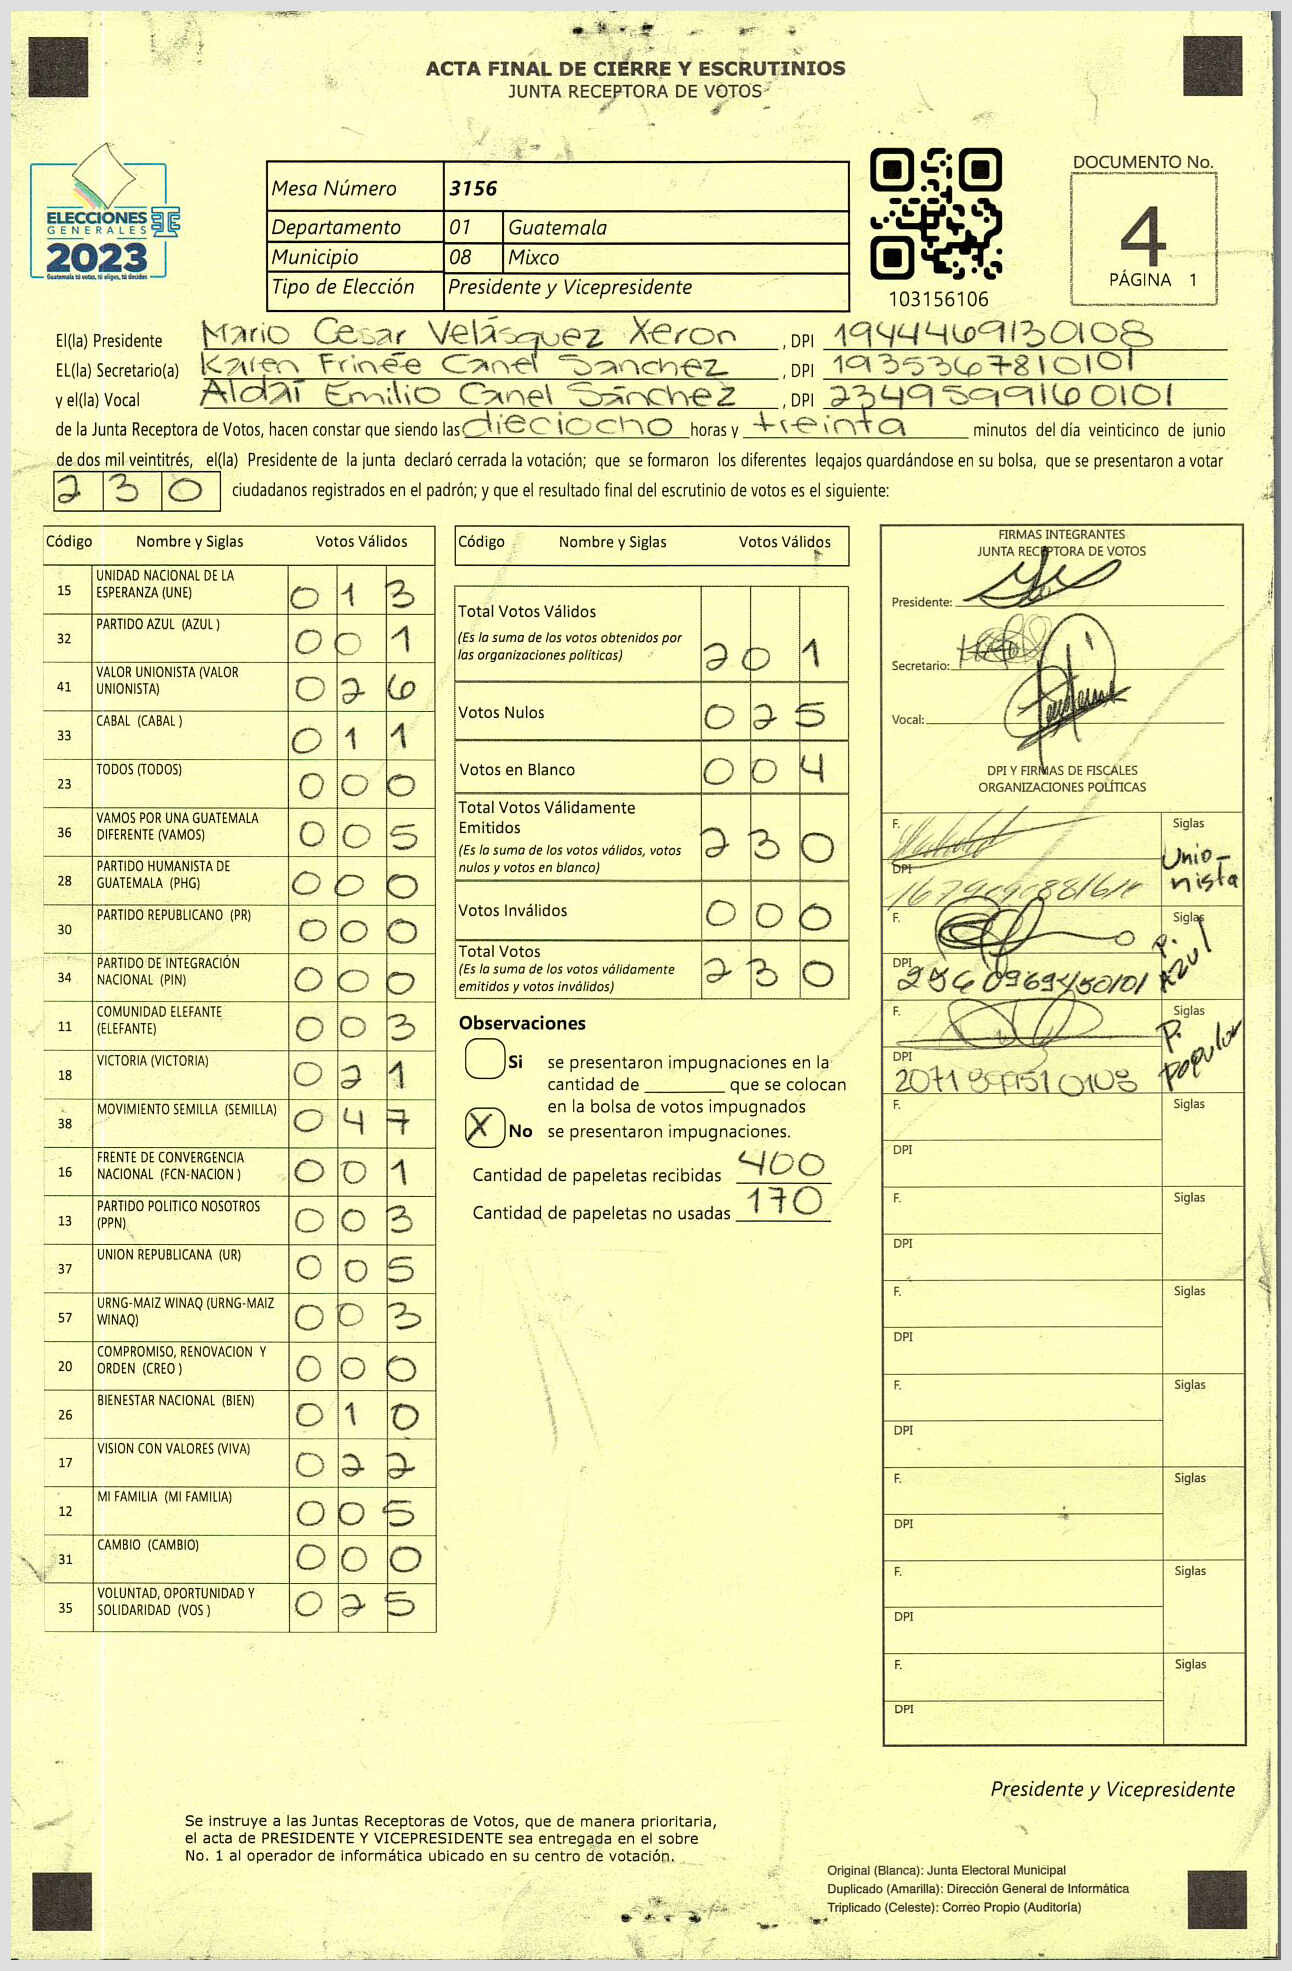 ACTA FINAL DE CIERRE Y ESCRUTINIOS
JUNTA RECEPTORA DE VOTOS
ELECCIONES
GENERALES
2023
Guatemala tú votas, tú eliges, tú decides
Mesa Número 3156
Departamento 01 Guatemala
Municipio 08 Mixco
Tipo de Elección Presidente y Vicepresidente
103156106
DOCUMENTO No.
4
PÁGINA 1
El(la) Presidente Mario Cesar Velásquez Xeron , DPI 1944469130108
EL(la) Secretario(a) Karen Frinée Canel Sanchez , DPI 1935367810101
y el(la) Vocal Aldaí Emilio Canel Sánchez , DPI 2349599160101
de la Junta Receptora de Votos, hacen constar que siendo las dieciocho horas y treinta minutos del día veinticinco de junio
de dos mil veintitrés, el(la) Presidente de la junta declaró cerrada la votación; que se formaron los diferentes legajos guardándose en su bolsa, que se presentaron a votar
230 ciudadanos registrados en el padrón; y que el resultado final del escrutinio de votos es el siguiente:
Código Nombre y Siglas Votos Válidos
15 UNIDAD NACIONAL DE LA ESPERANZA (UNE) 013
32 PARTIDO AZUL (AZUL ) 001
41 VALOR UNIONISTA (VALOR UNIONISTA) 026
33 CABAL (CABAL ) 011
23 TODOS (TODOS) 000
36 VAMOS POR UNA GUATEMALA DIFERENTE (VAMOS) 005
28 PARTIDO HUMANISTA DE GUATEMALA (PHG) 000
30 PARTIDO REPUBLICANO (PR) 000
34 PARTIDO DE INTEGRACIÓN NACIONAL (PIN) 000
11 COMUNIDAD ELEFANTE (ELEFANTE) 003
18 VICTORIA (VICTORIA) 021
38 MOVIMIENTO SEMILLA (SEMILLA) 047
16 FRENTE DE CONVERGENCIA NACIONAL (FCN-NACION ) 001
13 PARTIDO POLITICO NOSOTROS (PPN) 003
37 UNION REPUBLICANA (UR) 005
57 URNG-MAIZ WINAQ (URNG-MAIZ WINAQ) 003
20 COMPROMISO, RENOVACION Y ORDEN (CREO ) 000
26 BIENESTAR NACIONAL (BIEN) 010
17 VISION CON VALORES (VIVA) 022
12 MI FAMILIA (MI FAMILIA) 005
31 CAMBIO (CAMBIO) 000
35 VOLUNTAD, OPORTUNIDAD Y SOLIDARIDAD (VOS ) 025
Código Nombre y Siglas Votos Válidos
Total Votos Válidos 201
(Es la suma de los votos obtenidos por
las organizaciones políticas)
Votos Nulos 025
Votos en Blanco 004
Total Votos Válidamente
Emitidos 230
(Es la suma de los votos válidos, votos
nulos y votos en blanco)
Votos Inválidos 000
Total Votos 230
(Es la suma de los votos válidamente
emitidos y votos inválidos)
Observaciones
Si se presentaron impugnaciones en la
cantidad de ________ que se colocan
en la bolsa de votos impugnados
X No se presentaron impugnaciones.
Cantidad de papeletas recibidas 400
Cantidad de papeletas no usadas 170
FIRMAS INTEGRANTES
JUNTA RECEPTORA DE VOTOS
Presidente:
Secretario:
Vocal:
DPI Y FIRMAS DE FISCALES
ORGANIZACIONES POLÍTICAS
F. Siglas
Unio-
nista
DPI
F. Siglas
P. AZUL
DPI
F. Siglas
P. Popular
DPI
F. Siglas
DPI
F. Siglas
DPI
F. Siglas
DPI
F. Siglas
DPI
F. Siglas
DPI
F. Siglas
DPI
F. Siglas
DPI
Presidente y Vicepresidente
Se instruye a las Juntas Receptoras de Votos, que de manera prioritaria,
el acta de PRESIDENTE Y VICEPRESIDENTE sea entregada en el sobre
No. 1 al operador de informática ubicado en su centro de votación.
Original (Blanca): Junta Electoral Municipal
Duplicado (Amarilla): Dirección General de Informática
Triplicado (Celeste): Correo Propio (Auditoría)